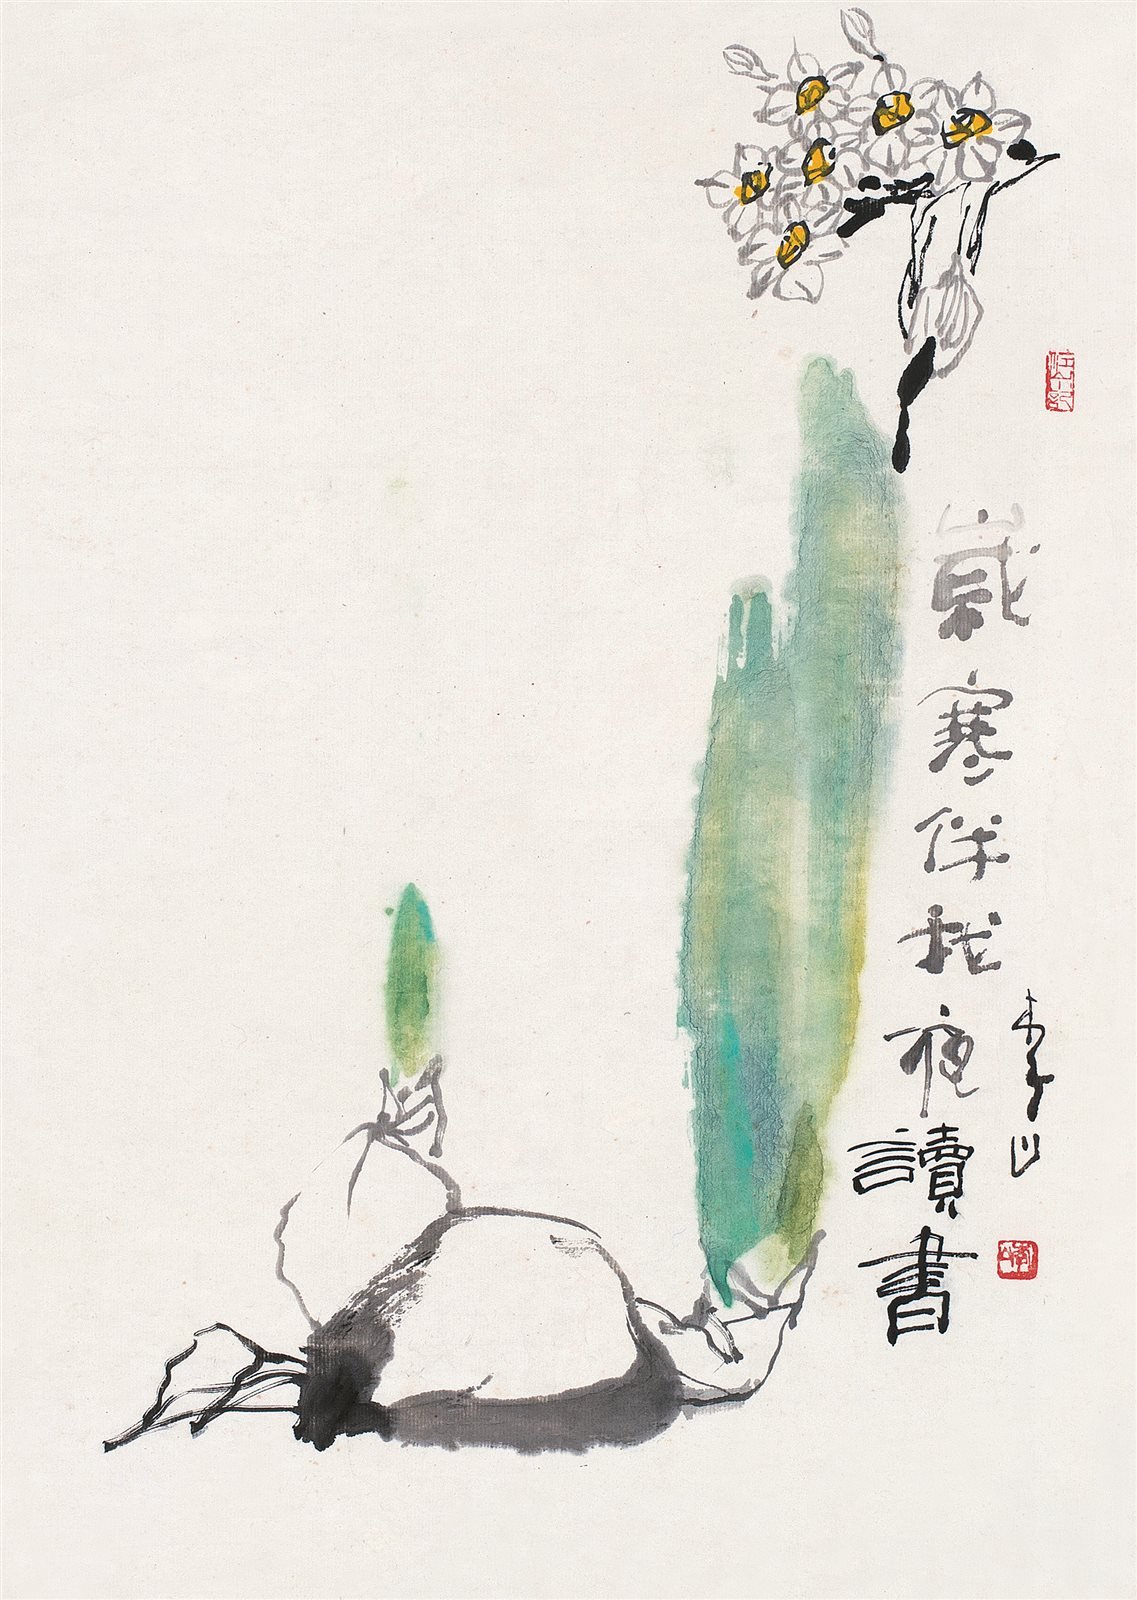 歲寒伴我夜讀書
李山